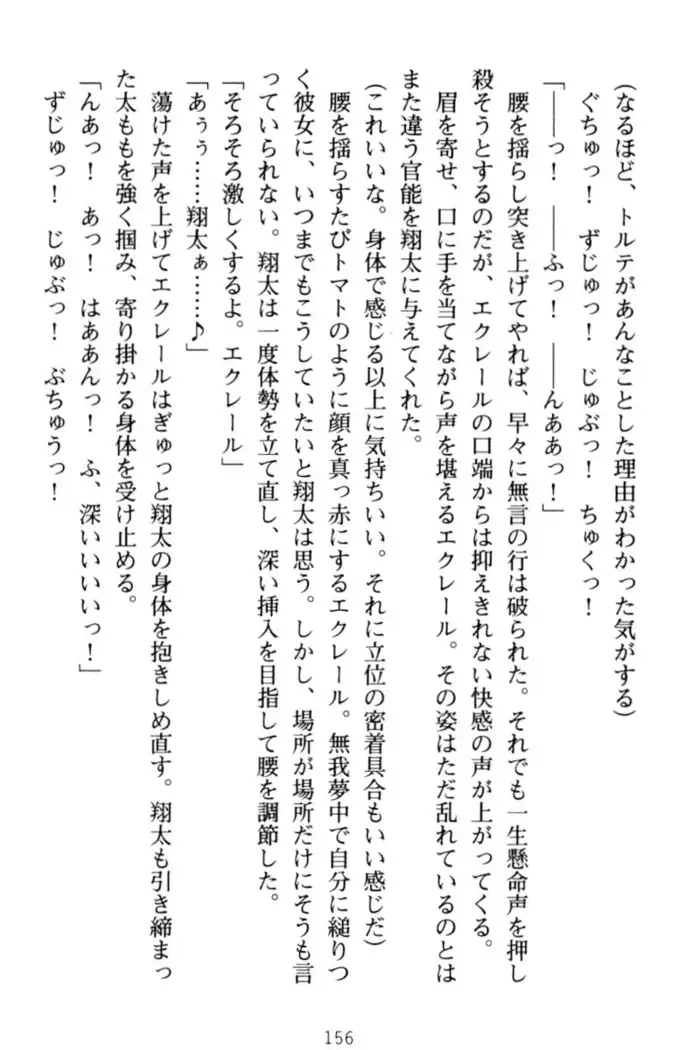 (なるほど、トルテがあんなことした理由がわかった気がする)
ぐちゅっ！　ずじゅっ！　じゅぶっ！　ちゅくっ！
「――っ！　――ふっ！　――んああっ！」
腰を揺らし突き上げてやれば、早々に無言の行は破られた。それでも一生懸命声を押し
殺そうとするのだが、エクレールの口端からは抑えきれない快感の声が上がってくる。
眉を寄せ、口に手を当てながら声を堪えるエクレール。その姿はただ乱れているのとは
また違う官能を翔太に与えてくれた。
(これいいな。身体で感じる以上に気持ちいい。それに立位の密着具合もいい感じだ)
腰を揺らすたびトマトのように顔を真っ赤にするエクレール。無我夢中で自分に縋りつ
く彼女に、いつまでもこうしていたいと翔太は思う。しかし、場所が場所だけにそうも言
っていられない。翔太は一度体勢を立て直し、深い挿入を目指して腰を調節した。
「そろそろ激しくするよ。エクレール」
「あぅぅ……翔太ぁ……♪」
蕩けた声を上げてエクレールはぎゅっと翔太の身体を抱きしめ直す。翔太も引き締まっ
た太ももを強く掴み、寄り掛かる身体を受け止める。
「んあっ！　あっ！　はああんっ！　ふ、深いいいいっ！」
ずじゅっ！　じゅぶっ！　ぶちゅうっ！
156